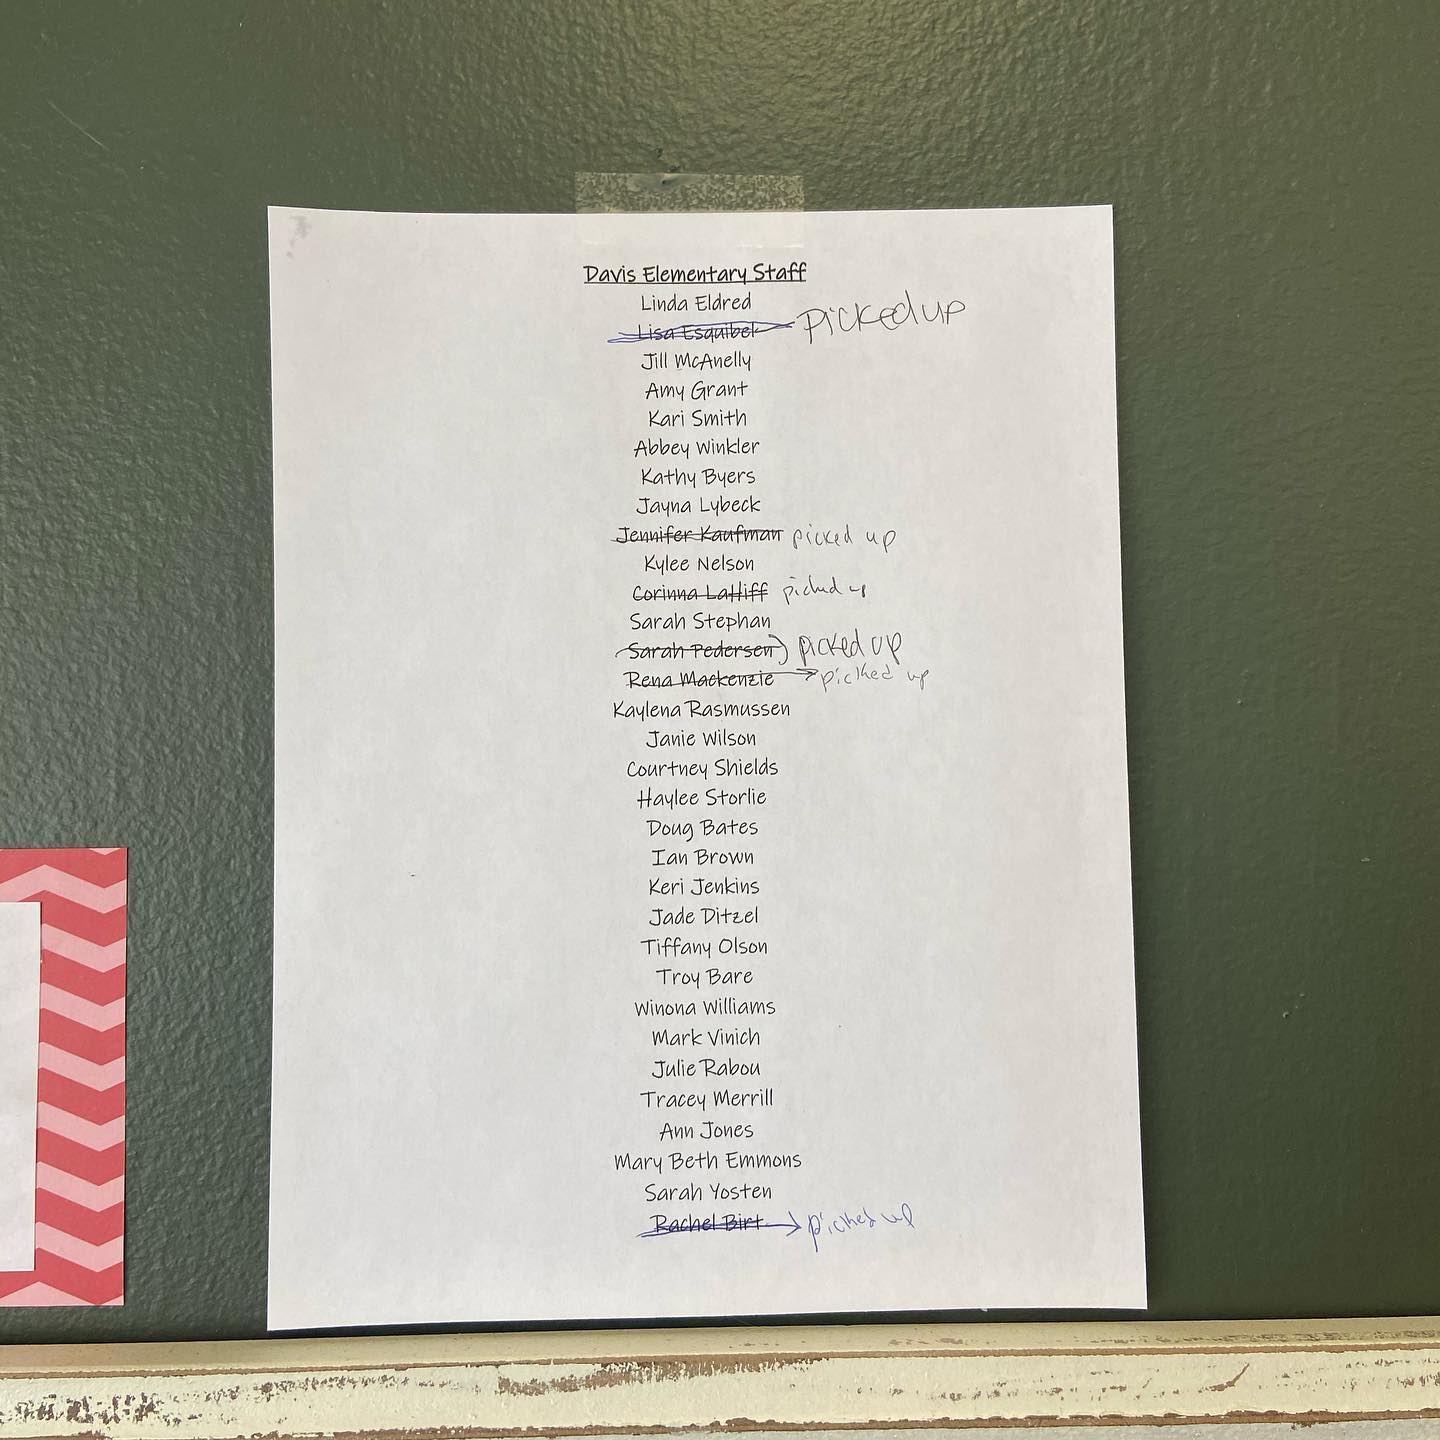 Davis Elementary Staff
Linda Eldred
Lisa Esquibel picked up
Jill McAnelly
Amy Grant
Kari Smith
Abbey Winkler
Kathy Byers
Jayna Lybeck
Jennifer Kaufman picked up
Kylee Nelson
Corinna LaHiff picked up
Sarah Stephan
Sarah Pedersen picked up
Rena Mackenzie picked up
Kaylena Rasmussen
Janie Wilson
Courtney Shields
Haylee Storlie
Doug Bates
Ian Brown
Keri Jenkins
Jade Ditzel
Tiffany Olson
Troy Bare
Winona Williams
Mark Vinich
Julie Rabou
Tracey Merrill
Ann Jones
Mary Beth Emmons
Sarah Yosten
Rachel Birt picked up